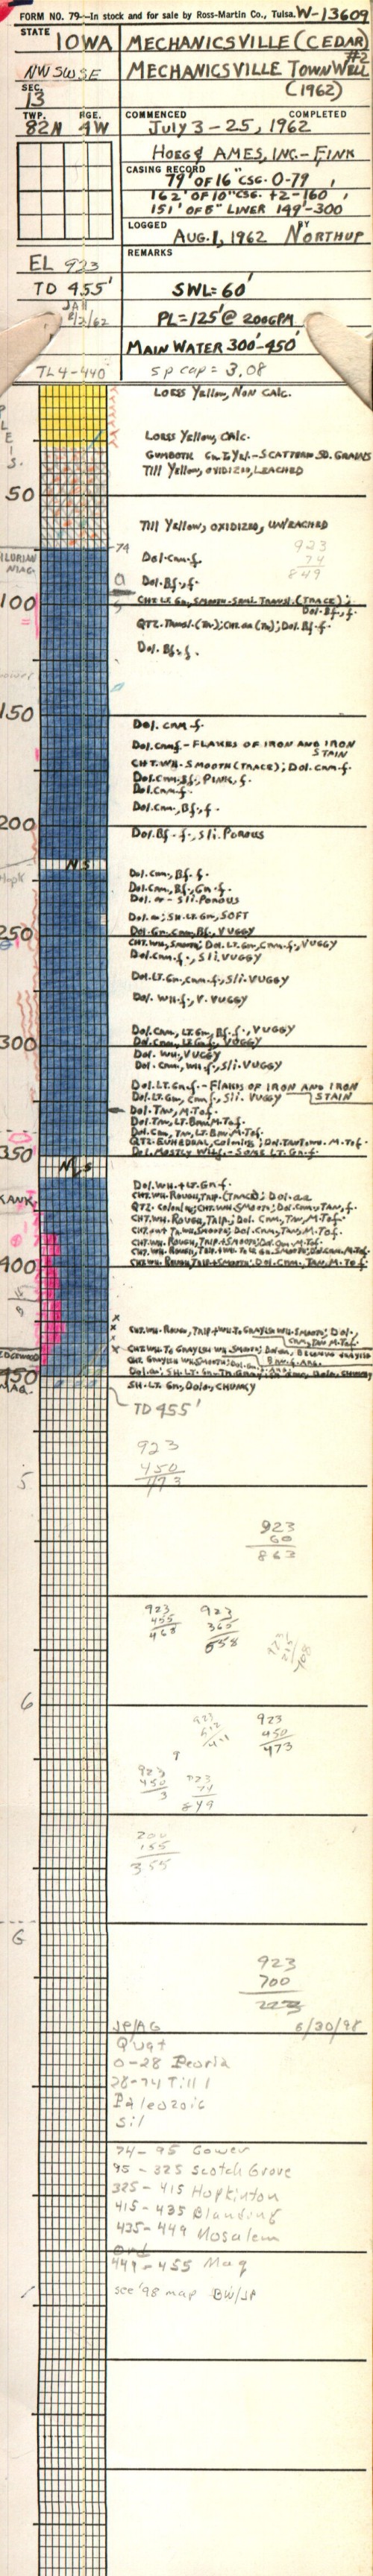 FORM NO. 79—In stock and for sale by Ross-Martin Co., Tulsa. W-13609
STATE IOWA
MECHANICSVILLE (CEDAR)
#2
NW SW SE
MECHANICSVILLE TOWN WELL
(1962)
SEC.
13
TWP. RGE.
82N 4W
COMMENCED COMPLETED
July 3-25, 1962
HOEG & AMES, INC.-FINK
CASING RECORD
79' OF 16" CSG. 0-79
162' OF 10" CSG. +2-160
151' OF 8" LINER 149'-300
LOGGED BY
AUG. 1, 1962 NORTHUP
EL 923
REMARKS
TD 455'
SWL=60'
JAH
8/2/62
PL=125'@ 200GPM
MAIN WATER 300'-450'
TL4-440
sp cap = 3.08
LOESS Yellow, NON CALC.
LOESS Yellow, CALC.
GUMBOTIL Gn. To Yel.-SCATTERED SD. GRAINS
TILL Yellow, OXIDIZED, LEACHED
50
TILL Yellow, OXIDIZED, UNLEACHED
74
923
74
849
DOL.-CRM.-f.
DOL. Bf., f.
100
CHT. LT. Gn., SMOOTH-SMAL TRANSL. (TRACE);
DOL. Bf., f.
QTZ. TRANSL. (TR.); CHT. aa (TR.); DOL. Bf.-f.
DOL. Bf., f.
150
DOL. CRM.-f.
DOL. CRM.f.-FLAKES OF IRON AND IRON
STAIN
CHT. WH.-SMOOTH (TRACE); DOL. CRM.-f.
DOL. CRM. Bf., PINK, f.
DOL. CRM.-f.
DOL. CRM., Bf., f.
200
DOL. Bf.-f., Sli. POROUS
NS
DOL. CRM., Bf.-f.
DOL. CRM., Bf., Gn.-f.
DOL. aa-Sli. POROUS
DOL. aa; SH. LT. Gn., SOFT
250
DOL. Gn. CRM., Bf., VUGGY
CHT. WH., SMOOTH; DOL. LT. Gn., CRM.-f., VUGGY
DOL. CRM.-f., Sli. VUGGY
DOL. LT. Gn., CRM.-f., Sli-VUGGY
DOL. WH.-f., V. VUGGY
DOL. CRM., LT. Gn., Bf.-f., VUGGY
300
DOL. CRM., LT. Gn.-f., VUGGY
DOL. WH., VUGGY
DOL. CRM., WH.-f., Sli-VUGGY
DOL. LT. Gn.-f.-FLAKES OF IRON AND IRON
STAIN
DOL. LT. Gn., CRM.-f., Sli. VUGGY
DOL. TAN, M. To f.
DOL. TAN, LT. BRN. M. To f.
DOL. CRM., TAN, LT. BRN. M. To f.
QTZ. EUHEDRAL, COLORLESS; DOL. TAN To WH. M. To f.
350
DOL. MOSTLY WH.f.-SOME LT. Gn.-f.
NS
DOL. WH. + LT. Gn.-f.
KANK.
CHT. WH. ROUGH, TRIP. (TRACE); DOL. aa
QTZ. COLORLESS; CHT. WH. SMOOTH; DOL. CRM., TAN, f.
CHT. WH. ROUGH, TRIP.; DOL. CRM., TAN, M. To f.
400
CHT. WH. ROUGH, TRIP. + SMOOTH; DOL. CRM., TAN, M. To f.
CHT. WH. ROUGH, TRIP. + WH. To GRAYISH WH. SMOOTH; DOL.,
CRM., TAN M. To f.
EDGEWOOD
450
MAQ.
SH.-LT. Gn., DOLO., CHUNKY
TD 455'
923
450
473
5
923
60
863
923
455
468
923
365
558
6
923
450
473
923
74
849
200
155
355
G
923
700
223
JP/AG 6/30/98
Quat
0-28 Peoria
28-74 Till 1
Paleozoic
Sil
74-95 Gower
95-325 Scotch Grove
325-415 Hopkinton
415-435 Blanding
435-449 Mosalem
Ord
449-455 Maq
see '98 map BW/JP